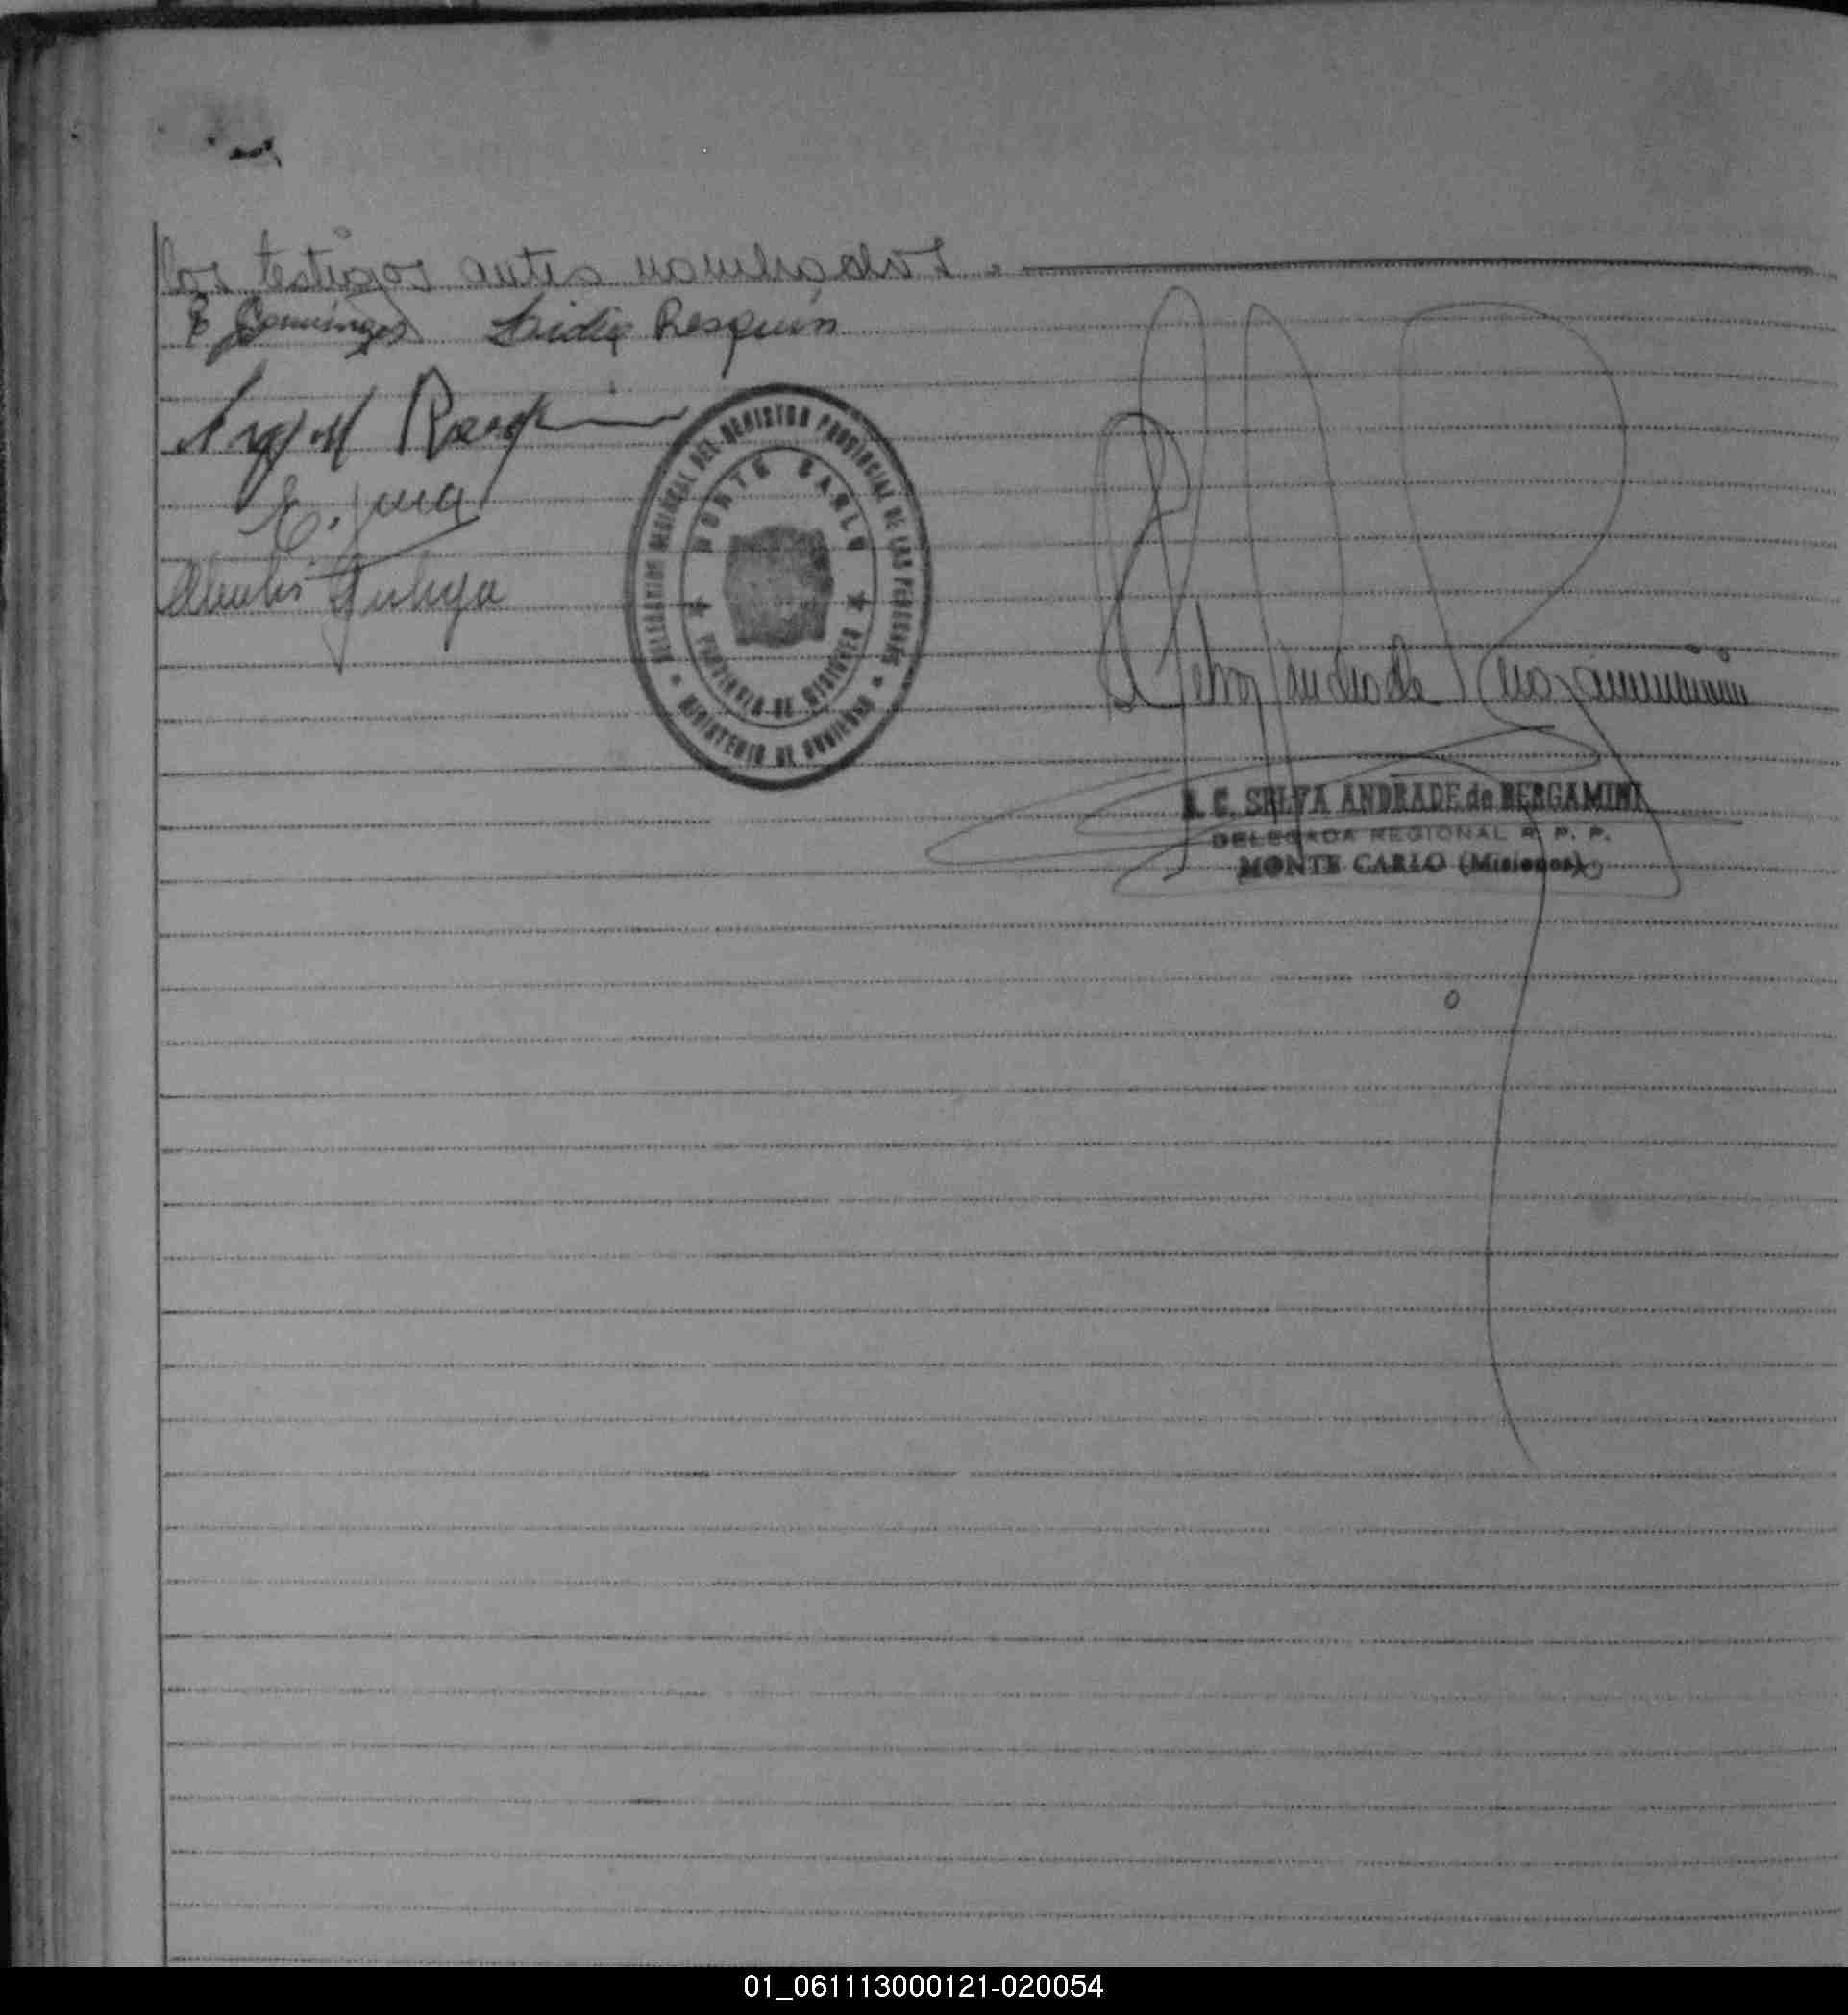 los testigos antes nombrados.
E Dominguez Lidia Resquin
E.
DELEGACION REGIONAL DEL REGISTRO PROVINCIAL DE LAS PERSONAS
MONTE CARLO
PROVINCIA DE MISIONES
MINISTERIO DE GOBIERNO
Selva Andrade
SELVA ANDRADE de BERGAMINI
DELEGADA REGIONAL R. P. P.
MONTE CARLO (Misiones)
01_061113000121-020054